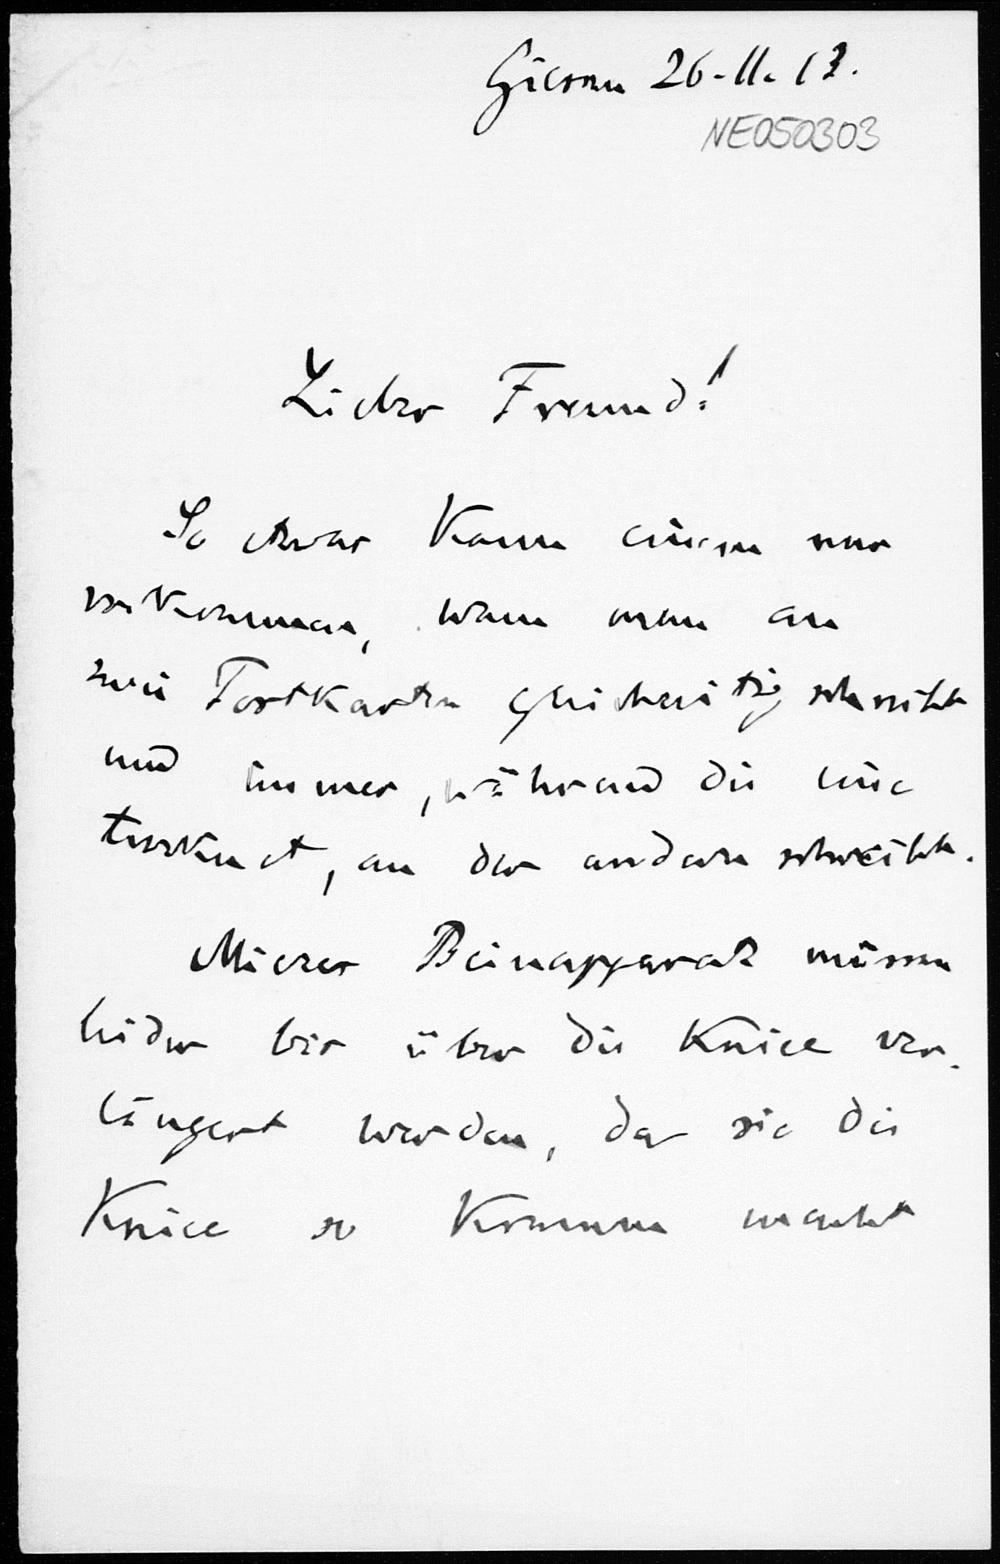 Giessen 26.11.13.
NE050303
Lieber Freund!
So etwas kann einem nur
vorkommen, wenn man an
zwei Postkarten gleichzeitig schreibt
und immer, während die eine
trocknet, an der andern schreibt.
Mieze's Beinapparat müssen
leider bis über die Kniee ver-
längert werden, da sie die
Kniee so krumm macht